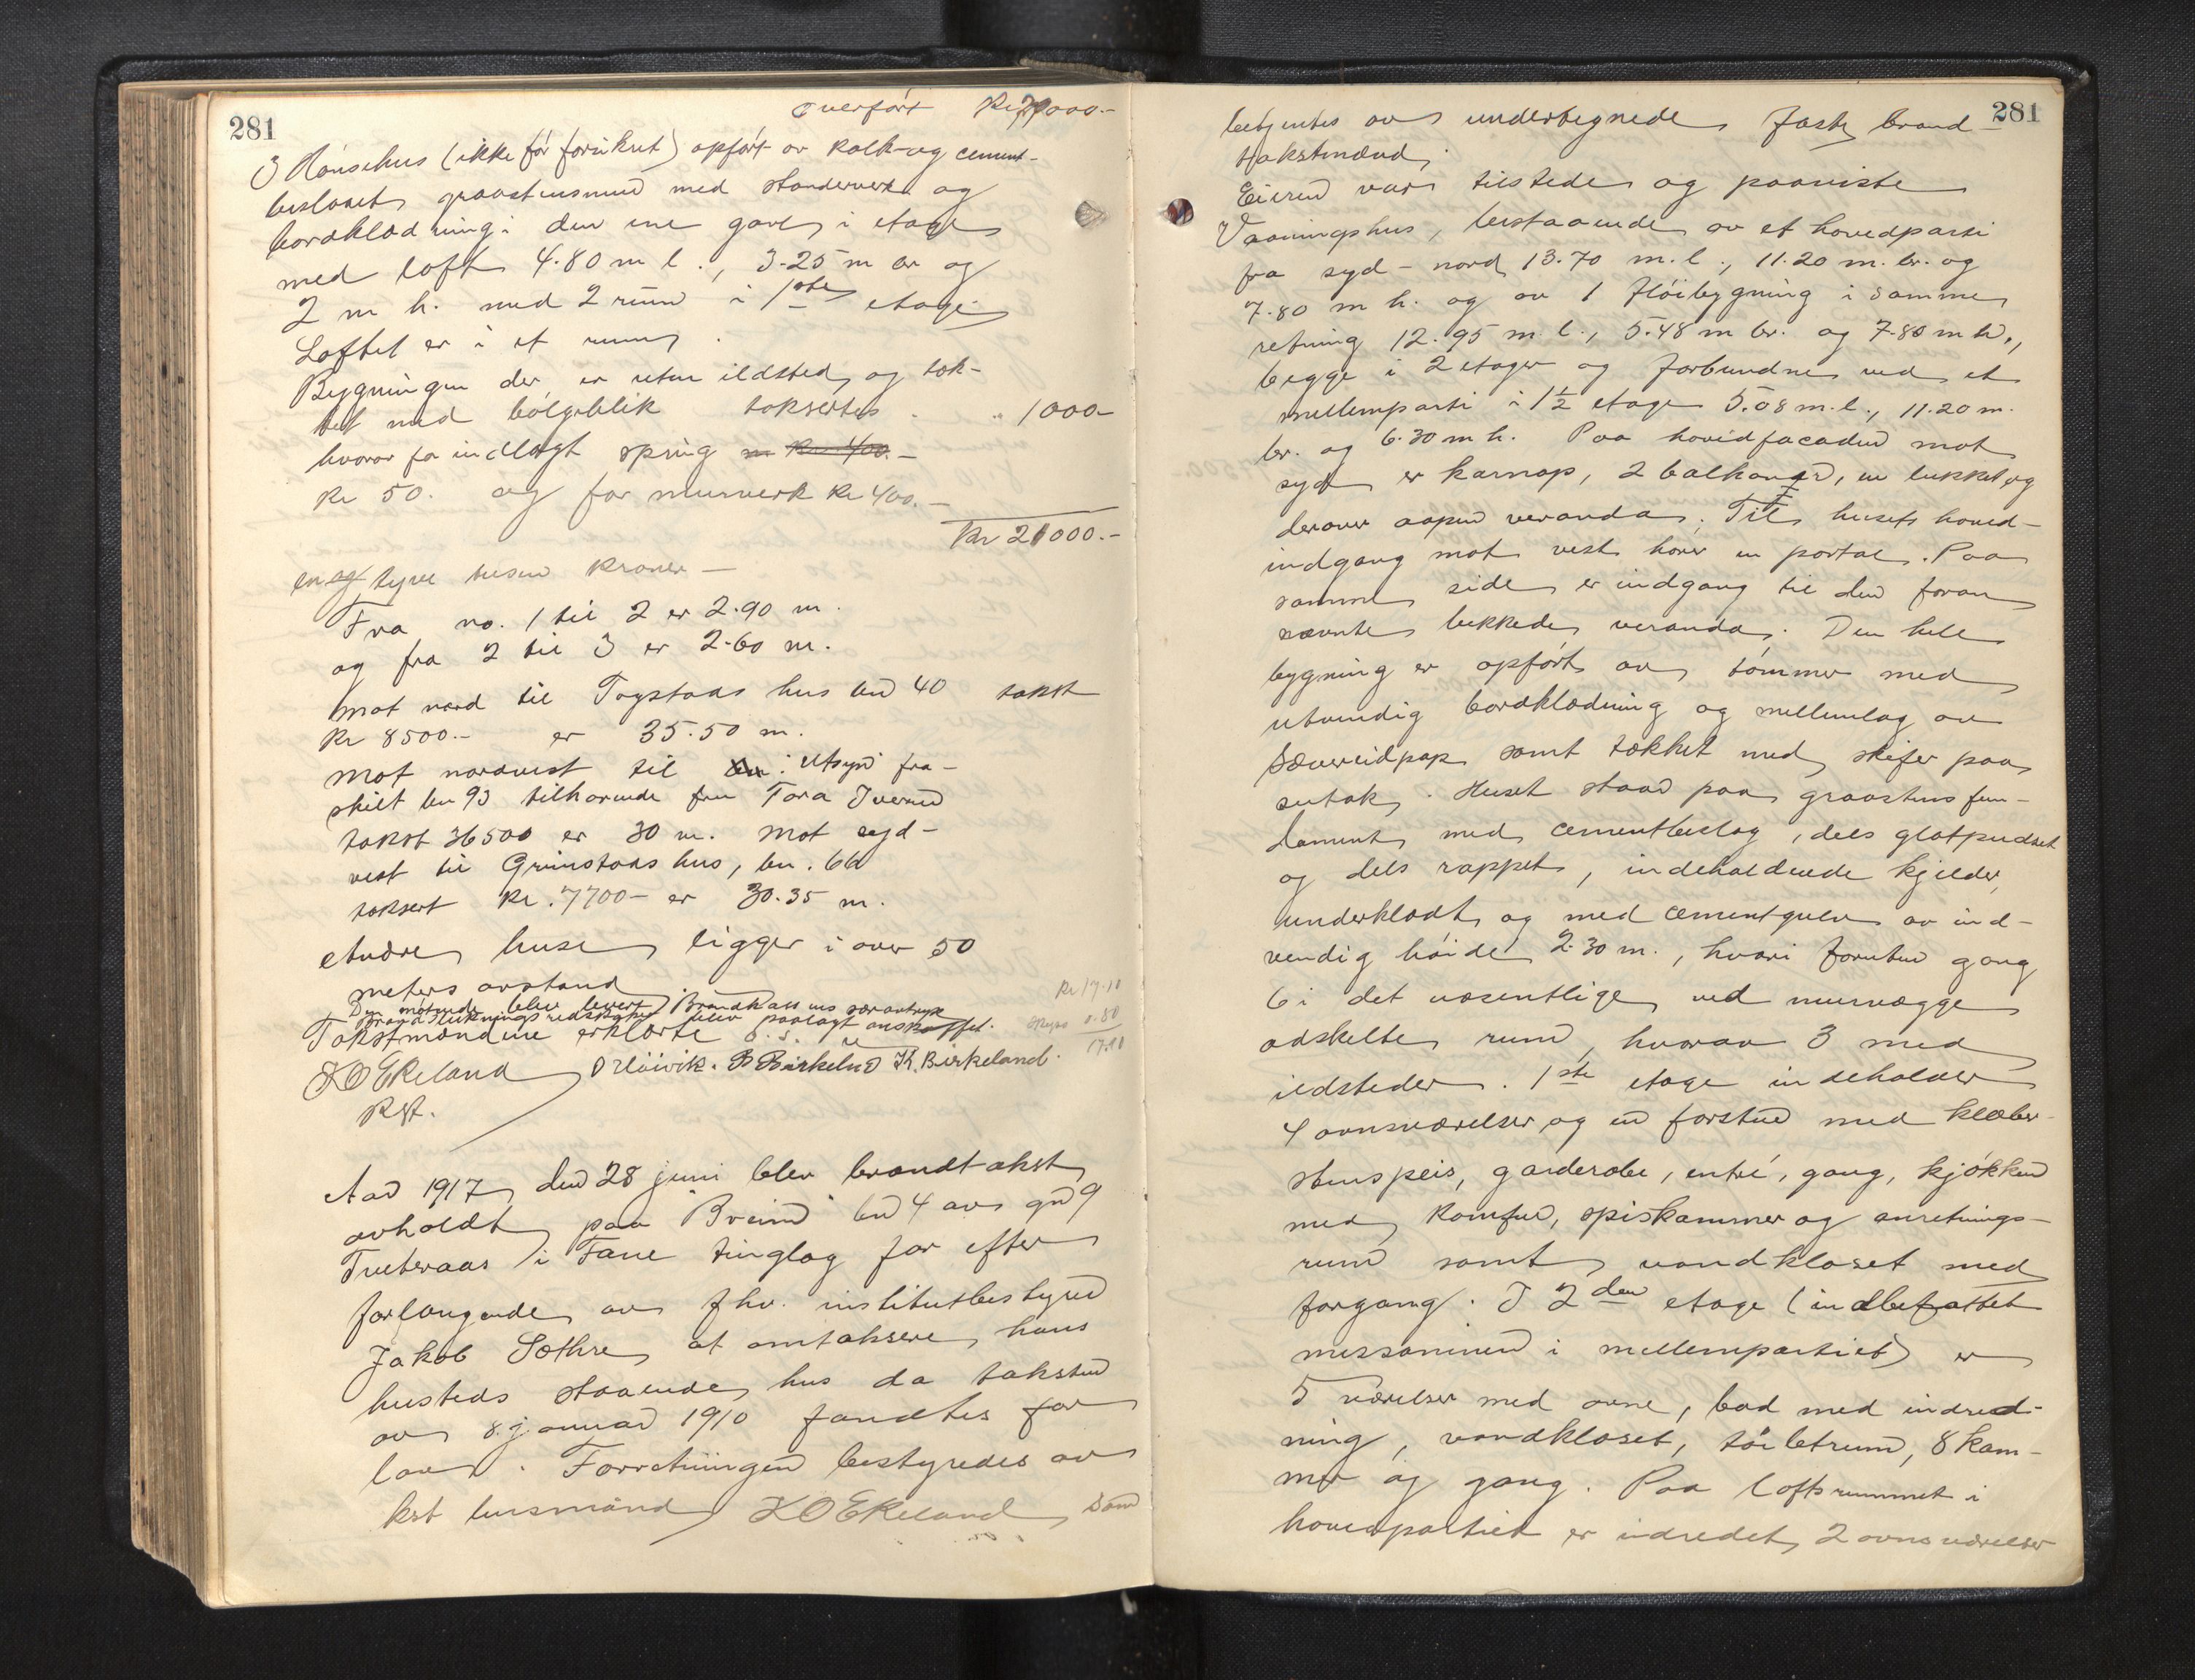 281
Overført Kr 20000.-
3 Hønsehus (ikke før forsikret) opført av kalk- og cement-
beslaaet graastensmur med standerverk og
bordklædning i den ene gavl i etage
med loft 4.80 m l., 3.25 m br og
2 m h. med 2 rum i 1ste etage
Loftet er i et rum.
Bygningen der er uten ildsted og tæk-
ket med bølgeblik taksertes . " 1000-
hvorav for indlagt spring
Kr 50. og for murverk Kr 400.-
Kr 21000.-
en og tyve tusen kroner -
Fra no. 1 til 2 er 2.90 m.
og fra 2 til 3 er 2.60 m.
Mot nord til Togstads hus bn 40 takst
Kr 8500.- er 35.50 m.
Mot nordvest til Utsyn fra-
skilt bn 93 tilhørende fru Tora Iversen
takst 36500 er 30 m. Mot syd-
vest til Grimstads hus, bn. 66
taksert Kr. 7700- er 30.35 m.
Andre huse ligger i over 50
meters avstand
Den møtende blev levert Brandkassens særavtryk
Brandslukningsredskaper blev paalagt anskaffet.
Takstmændene erklærte
Kr 17.10
Skyss 0.80
17.90
K O Ekeland O Høivik. B Birkelund K. Birkeland.
Kst.
Aar 1917 den 28 juni blev brandtakst
avholdt paa "Breim" bn 4 av gn 9
Tveteraas i Fane tinglag for efter
forlangende av fhv. institutbestyrer
Jakob Sæthre at omtaksere hans
husteds staaende hus da taksten
av 8. januar 1910 fandtes for
lav. Forretningen bestyredes av
kst lensmand K O Ekeland som
281
betjentes av undertegnede faste brand-
takstmænd.
Eieren var tilstede og paaviste
Vaaningshus, bestaaende av et hovedparti
fra syd - nord 13.70 m. l., 11.20 m. br. og
7.80 m h. og av 1 fløibygning i samme
retning 12.95 m. l., 5.48 m br. og 7.80 m h.,
begge i 2 etager og forbundne ved et
mellemparti i 1½ etage 5.08 m. l., 11.20 m.
br. og 6.30 m h. Paa hovedfacaden mot
syd er karnap, 2 balkonger, en lukket og
derover aapen veranda. Til husets hoved-
indgang mot vest hører en portal. Paa
samme side er indgang til den foran
nævnte lukkede veranda. Den hele
bygning er opført av tømmer med
utvendig bordklædning og mellemlag av
Sævereidpap samt tækket med skifer paa
sutak. Huset staar paa graastens fun-
dament med cementbeslag, dels glatpudset
og dels rappet, indeholdende kjelder,
underklædt og med cementgulv av ind-
vendig høide 2.30 m., hvori foruten gang
6 i det væsentlige ved murvægge
adskelte rum, hvorav 3 med
ildsteder. 1ste etage indeholder
4 ovnsværelser og en forstue med klæber-
stenspeis, garderobe, entré, gang, kjøkken
med komfur, spiskammer og anretnings-
rum samt vandkloset med
forgang. I 2den etage (indbefattet
messaninen i mellempartiet) er
5 værelser med ovne, bad med indred-
ning, vandkloset, toiletrum, 8 kam-
mer og gang. Paa loftsrummet i
hovedpartiet er indredet 2 ovnsværelser